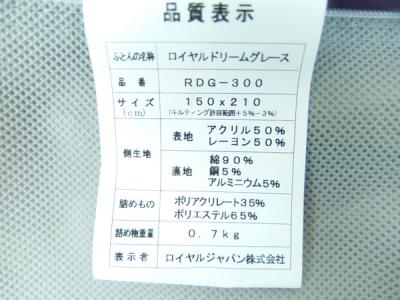 品質表示
ふとんの名称 ロイヤルドリームグレース
品番 RDG-300
サイズ 150x210
(cm) (キルティング許容範囲+5%-3%)
側生地 表地 アクリル50%
レーヨン50%
裏地 綿90%
銅5%
アルミニウム5%
詰めもの ポリアクリレート35%
ポリエステル65%
詰め物重量 0.7kg
表示者 ロイヤルジャパン株式会社